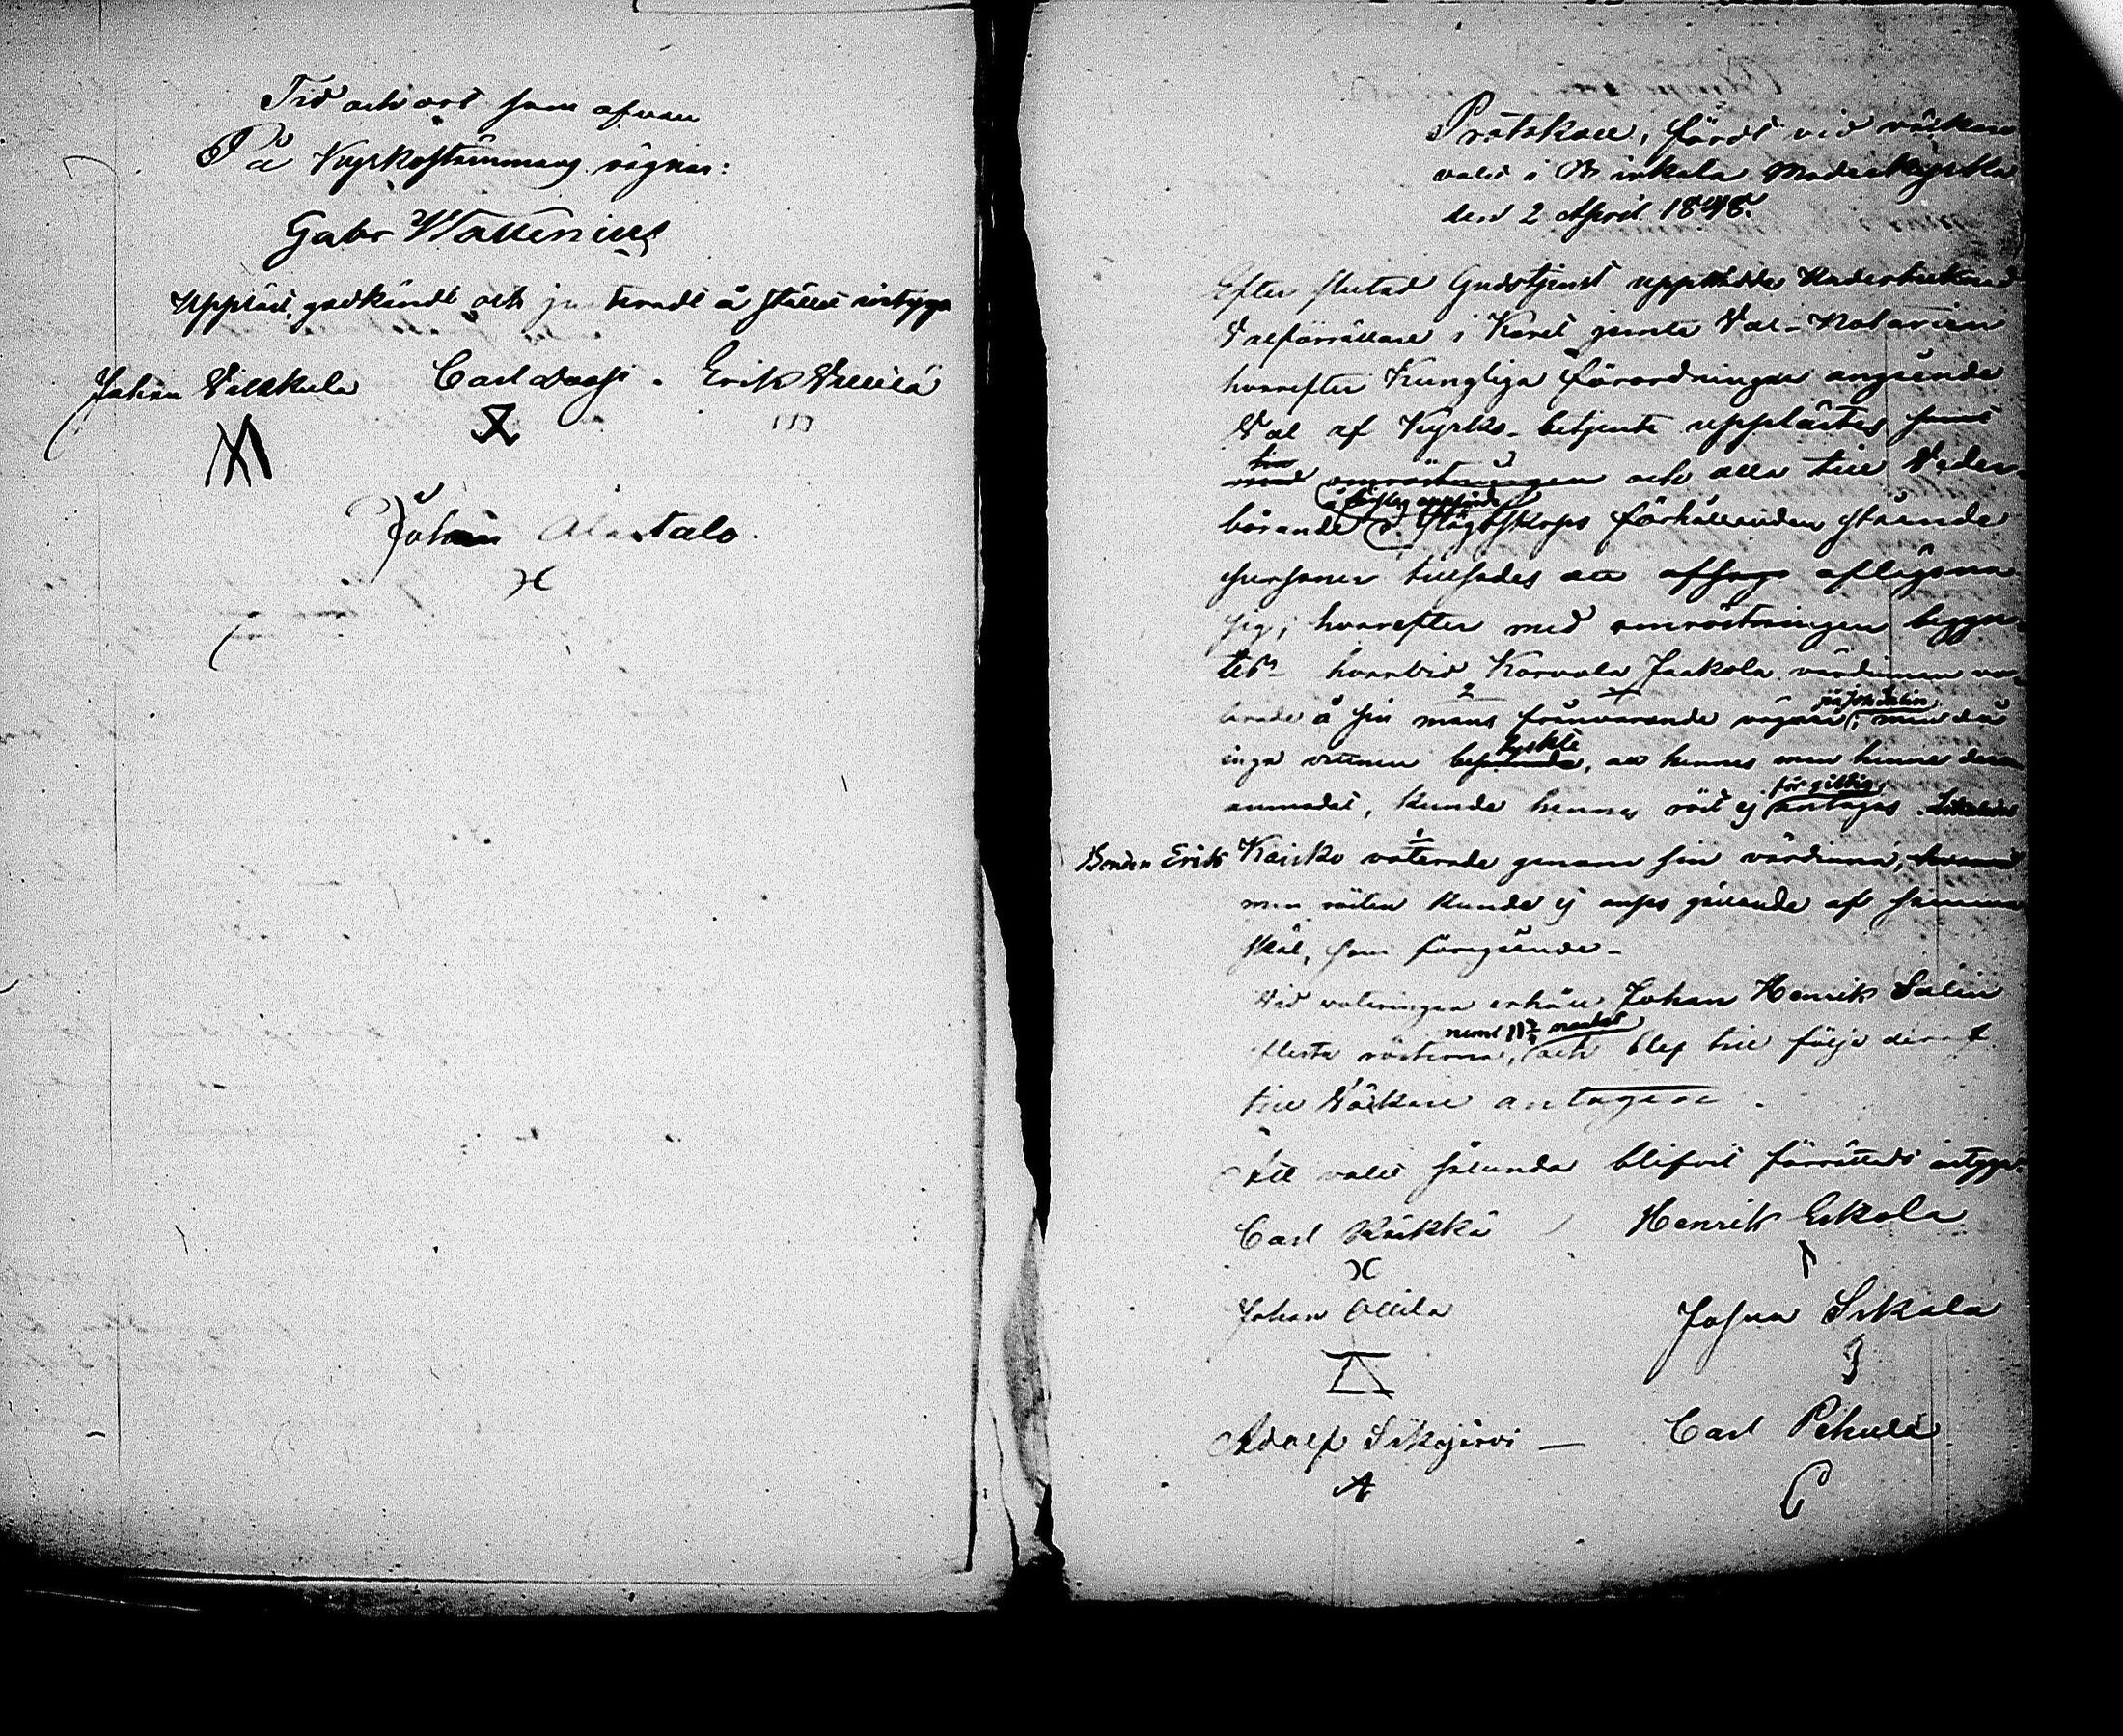 Tid och ort som ofvan
På Kyrkostämmans vägnar:
Gabr Wallenius
Uppläst, godkändt och justeradt å stället intyga
Johan Villakala Carl Erik Villilä
Johan Alastalo.
Protokoll, fördt vid väckare
valet i Birkala Moderkyrka
den 2 April 1848.
Efter slutad Gudstjenst uppträdde Undertecknad
Valförrättare i Koret jemte Val-Notarien
hvarefter Kungliga förordningar angående
Val af Kyrko-betjente upplästes samt
med omröstningen och alla till Veder-
börande i slägtskaps förhållanden stående
personer tillsades att afsäga aflägsna
sig; hvarefter med omröstningen begyn-
tes hvarvid Korvola Jaakola värdinnan vo-
terade å sin mans frånvarande vägnar; men då
på Joh Salin
inga vittnen lyckte, att hennes man henne der
anmodat, kunde hennes röst ej antagas.
för giltig
Bonden Erik Kaisko voterade genom sin värdinna,
men rösten kunde ej anses gällande af samma
skäl, som föregående.
Vid voteringen erhöll Johan Henrik Salin
flesta rösterna, och blef till följe deraf
till Väckare antagen.
Att valet sålunda blifvit förrättadt intyga
Carl Räikkä Henrik Erkola
Johan Ollila Johan Sikala
Adolf Siikajärvi — Carl Pihula